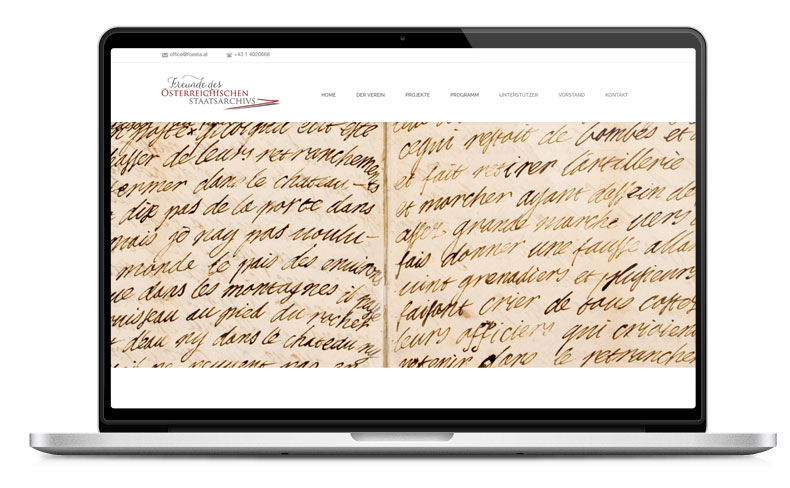 office@foesta.at +43 1 4020666
Freunde des
ÖSTERREICHISCHEN
STAATSARCHIVS
HOME DER VEREIN PROJEKTE PROGRAMM UNTERSTÜTZER VORSTAND KONTAKT
de leurs retranchemens
ermer dans le chateau
dix pas de la porte dans
mais je nay pas voulu-
monde le pais des environs
ue dans les montagnes il ny
uisseau au pied du rocher
d'eau ny dans le chateau ny
il ne peuvent pas
cequi restoit de bombes et
et fait retirer lartillerie
et marcher ayant dessein de
assez grande marche vers
fais donner une fausse allar
vint grenadiers et plusieurs
faisant crier de tous costez
leurs officiers qui crioient
retenir dans le retranchem